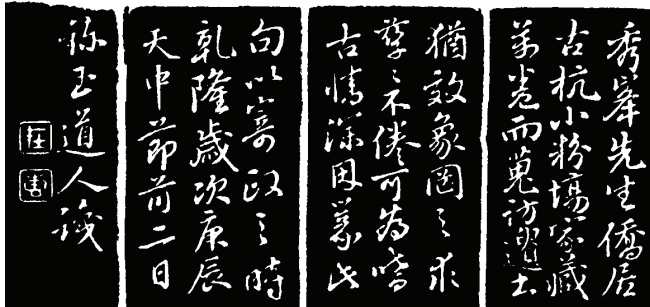 秀峯先生僑居
古杭小粉場家藏
萬卷而蒐訪遺書
猶效象罔之求
孳々不倦可為嗜
古情深因篆此
句以寄政之時
乾隆歲次庚辰
天中節前二日
玉道人識